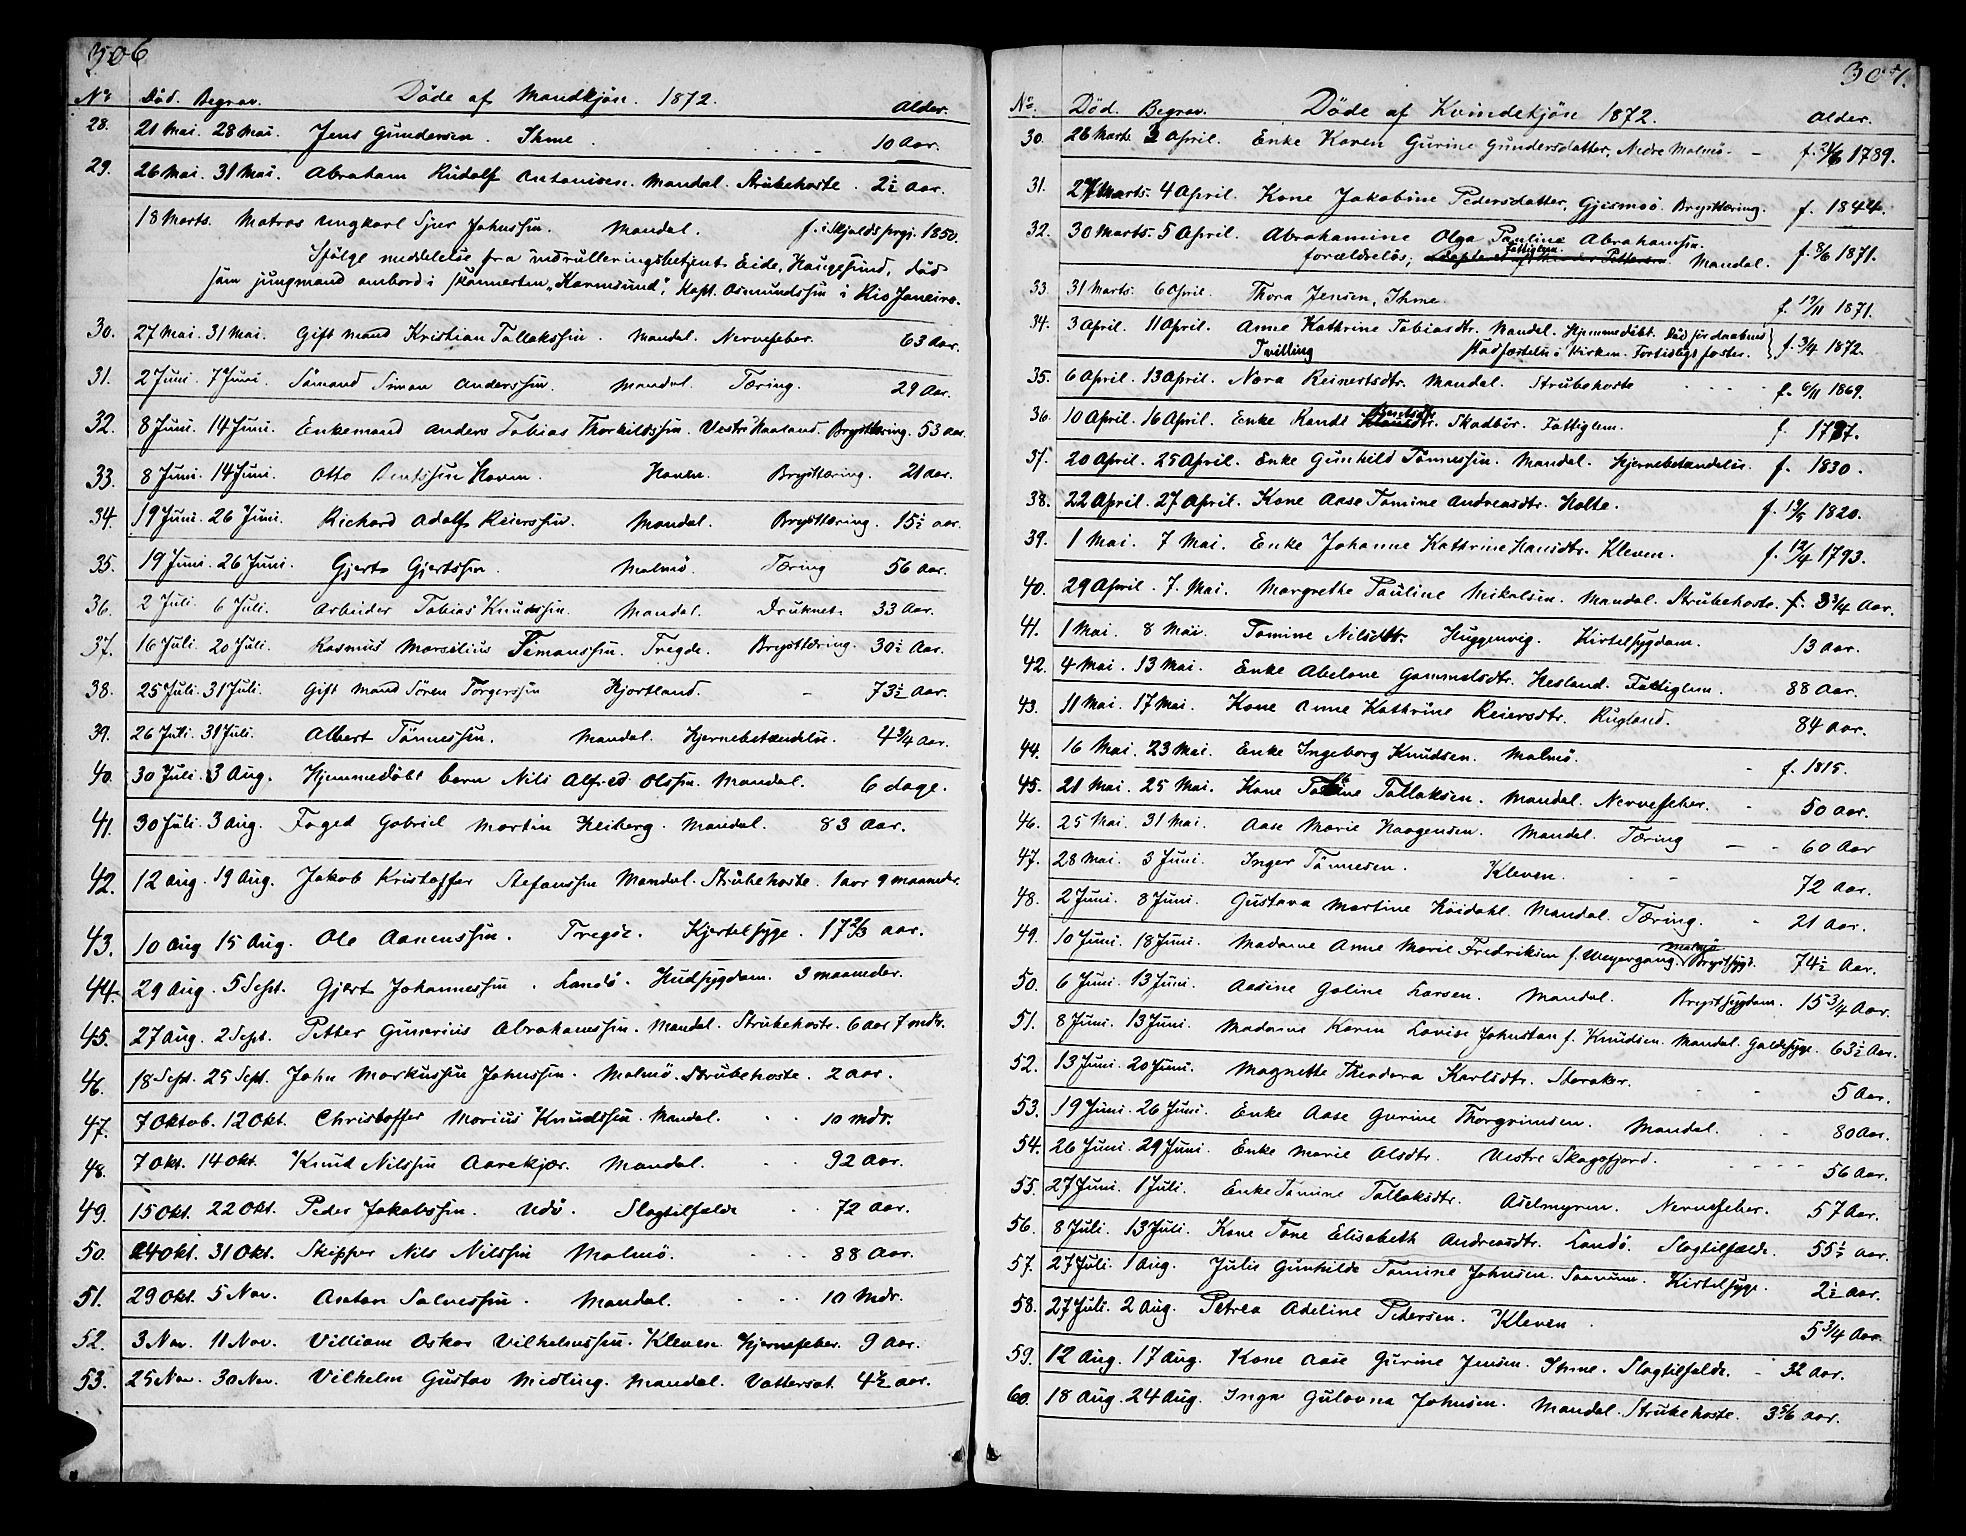 306
No. Död. Begrav. Döde af Mandkjön. 1872. Alder.
28. 21 Mai. 28 Mai. Jens Gundersen. Ihme. 10 Aar.
29. 26 Mai. 31 Mai. Abraham Rudolf Antonisen. Mandal. Strubehoste. 2½ Aar.
18 Marts. Matros Ungkarl Sjur Johnssen. Mandal. f. i Skjolds prgj. 1850.
Ifølge meddelelse fra indrulleringsbetjent Eide, Haugesund, död
som jungmand ombord i skonnerten "Karmsund", Kapt. Osmundssen i Rio Janeiro.
30. 27 Mai. 31 Mai. Gift Mand Kristian Tallakssen. Mandal. Nervefeber. 63 Aar.
31. 2 Juni. 7 Juni. Sömand Simon Anderssen. Mandal. Tæring. 29 Aar.
32. 8 Juni. 14 Juni. Enkemand Anders Tobias Thorkildssen. Vestre Haaland. Brysttæring. 53 aar.
33. 8 Juni. 14 Juni. Otto Bentssen Haven. Haven. Brysttæring. 21 aar.
34. 19 Juni. 26 Juni. Richard Adolf Reierssen. Mandal. Brysttæring. 15½ aar.
35. 19 Juni. 26 Juni. Gjert Gjertssen. Malmö. Tæring 56 Aar.
36. 2 Juli. 6 Juli. Arbeider Tobias Knudssen. Mandal. Druknet. 33 Aar.
37. 16 Juli. 20 Juli. Rasmus Marsilius Simonssen. Tregde. Brysttæring. 30½ Aar.
38. 25 Juli. 31 Juli. Gift Mand Sören Torgerssen Hjortland. - 73½ Aar.
39. 26 Juli. 31 Juli. Albert Tönnessen. Mandal. Hjernebetændelse. 4¾ Aar.
40. 30 Juli. 3 Aug. Hjemmedöbt barn Nils Alfred Olssen. Mandal. 6 dage.
41. 30 Juli. 3 Aug. Foged Gabriel Martin Heiberg. Mandal. 83 Aar.
42. 12 Aug. 19 Aug. Jakob Kristoffer Stefanssen Mandal. Strubehoste. 1 aar 9 maaneder.
43. 10 Aug 15 Aug. Ole Aanenssen. Tregde. Kjertelsyge. 17⅔ aar.
44. 29 Aug. 5 Sept. Gjert Johannessen. Landö. Hudsygdom. 3 maaneder.
45. 27 Aug. 2 Sept. Petter Gunerius Abrahamssen. Mandal. Strubehoste. 6 aar 7 mdr.
46. 18 Sept. 25 Sept. John Markussen Johnssen. Malmö. Strubehoste. 2 aar.
47. 7 Oktob. 12 Okt. Christoffer Marius Knudssen. Mandal. 10 mdr.
48. 7 Okt. 14 Okt. Knud Nilssen Aarekjær. Mandal. 92 Aar.
49. 15 Okt. 22 Okt. Peder Jakobssen. Udö. Slagtilfælde 72 Aar.
50. 24 Okt. 31 Okt. Skipper Nils Nilssen Malmö. 88 Aar.
51. 29 Okt. 5 Nov. Anton Salvessen. Mandal. 10 Mdr.
52. 3 Nov. 11 Nov. Villiam Oskar Vilhelmssen. Kleven. Hjernefeber. 9 Aar.
53. 25 Nov. 30 Nov. Vilhelm Gustav Midling. Mandal. Vattersot. 4½ aar.
307.
No. Död. Begrav. Döde af Kvindekjön 1872. Alder.
30. 26 Marts 3 April. Enke Karen Gurine Gundersdatter, Nedre Malmö. - f. 21/6 1789.
31. 27 Marts. 4 April. Kone Jakobine Pedersdatter, Gjesmoö. Brysttæring. f. 1844.
32. 30 Marts. 5 April. Abrahamine Olga Pauline Abrahamssen.
forældrelös, Fattiglem. Mandal. f. 8/6 1871.
33. 31 Marts. 6 April. Thora Jensen, Ihme. f. 19/11 1871.
34. 3 April. 11 April. Anne Kathrine Tobiasdtr. Mandal. Hjemmedöbt. Död för daabens
Tvilling stadfæstelse i Kirken. Fortidligt foster. f. 3/4 1872.
35. 6 April. 13 April. Nora Reinertsdtr. Mandal. Strubehoste f. 6/11 1869.
36. 10 April. 16 April. Enke Randi Berntsdtr. Skadber. Fattiglem. f. 1787.
37. 20 April. 25 April. Enke Gunhild Tönnessen. Mandal. Hjernebetændelse. f. 1830.
38. 22 April. 27 April. Kone Aase Tomine Andreasdtr. Holte. f. 13/5 1820.
39. 1 Mai. 7 Mai. Enke Johanne Kathrine Hansdtr. Kleven. f. 12/4 1793.
40. 29 April. 7. Mai. Margrethe Pauline Mikalsen. Mandal. Strubehoste. 3¾ Aar.
41. 1 Mai. 8 Mai. Tomine Nilsdtr. Huggenvig. Kirtelsygdom. 13 aar.
42. 4 Mai. 13 Mai. Enke Abelone Gammelsdtr. Hesland. Fattiglem. 88 Aar.
43. 11 Mai. 17 Mai. Kone Anne Kathrine Reiersdtr. Rugland. 84 Aar.
44. 16 Mai. 23 Mai. Enke Ingeborg Knudsen. Malmö. f. 1815.
45. 21 Mai. 25 Mai. Kone Tobine Tallaksen. Mandal. Nervefeber. 50 Aar.
46. 25 Mai. 31 Mai. Aase Marie Haagensen. Mandal. Tæring 60 Aar
47. 28 Mai. 3 Juni. Inger Tönnesen. Kleven. 72 Aar.
48. 2 Juni. 8 Juni. Gustava Martine Höidahl. Mandal. Tæring. 21 Aar.
49. 10 Juni. 18 Juni. Madame Anne Marie Fredriksen f. Weyergang. Malmö Brystsygd. 74½ Aar.
50. 6 Juni. 13 Juni. Aasine Galine Larsen. Mandal. Brystsygdom. 15¾ Aar.
51. 8 Juni. 13 Juni. Madame Karen Lovise Johnstan f. Knudsen. Mandal. Galdesyge. 63½ Aar.
52. 13 Juni. 20 Juni. Magnette Theodora Karlsdtr. Storaker. 5 Aar.
53. 19 Juni. 26 Juni. Enke Aase Gurine Thorgrimsen. Mandal. 80 Aar.
54. 26 Juni. 29 Juni. Enke Marie Alsdtr. Vestre Skogsfjord. 56 Aar.
55. 27 Juni. 1 Juli. Enke Tomine Tallaksdtr. Aselmyren. Nervefeber. 57 Aar.
56. 8 Juli. 13 Juli. Kone Tone Elisabeth Andreasdtr. Landö. Slagtilfælde. 55½ aar.
57. 27 Juli. 1 Aug. Julie Gunhilde Tomine Johnsen. Saanum. Kirtelsyge. 2½ Aar.
58. 27 Juli. 2 Aug. Petrea Adeline Pedersen. Kleven. 5¾ Aar.
59. 12 Aug. 17 Aug. Kone Aase Gurine Jensen. Ihme. Slagtilfælde. - 32 Aar.
60. 18 Aug. 24 Aug. Inga Gulovna Johnsen. Mandal. Strubehoste. 3 5/6 Aar.